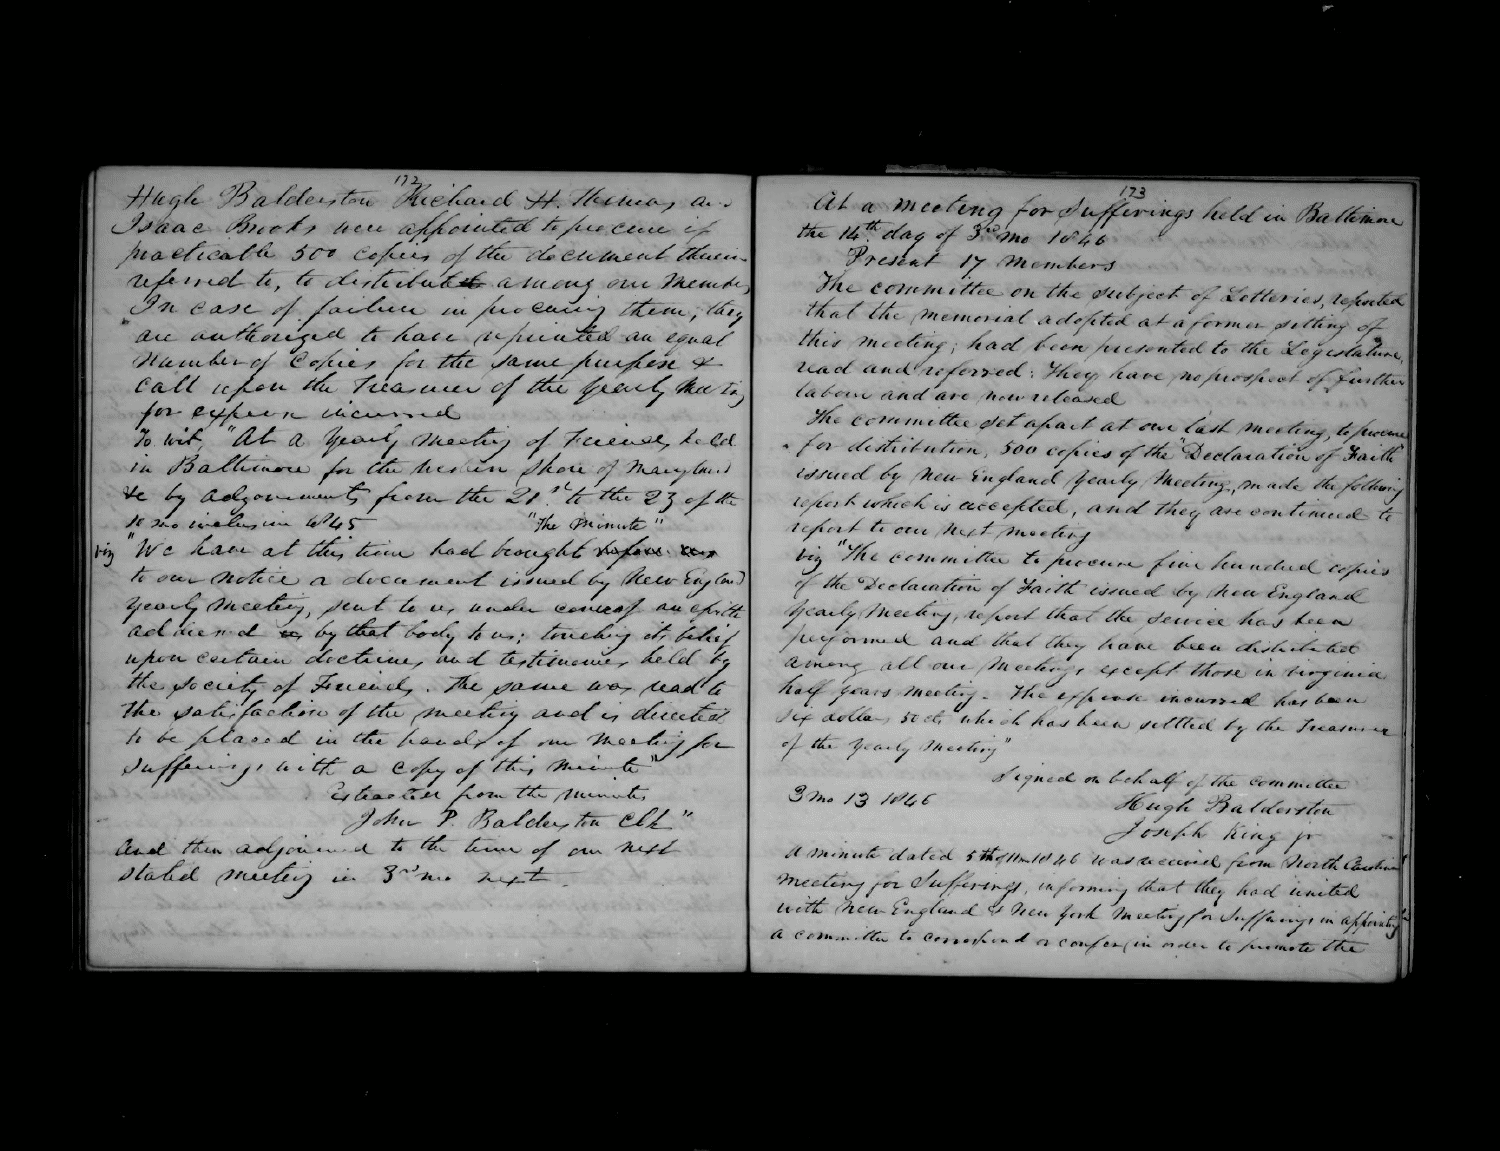 172
Hugh Balderston Richard H. Thomas an
Isaac Brooks were appointed to procure if
practicable 500 copies of the document therein
referred to, to distribute among our Members
In case of failure in procuring them, they
are authorized to have reprinted an equal
number of Copies for the same purpose &
call upon the Treasurer of the Yearly Meeting
for expense incurred
To wit, "At a Yearly Meeting of Friends held
in Baltimore for the western Shore of Maryland
&c by adjournments from the 21st to the 23 of the
10 mo inclusive 1845 "The Minute"
viz "We have at this time had brought before us
to our notice a document issued by New England
Yearly Meeting, sent to us under cover of an epistle
addressed us by that body to us; touching its belief
upon certain doctrines and testimonies held by
the Society of Friends. The same was read to
the satisfaction of the meeting and is directed
to be placed in the hands of our Meeting for
Sufferings with a copy of this minute"
Extracted from the minutes
John P. Balderston Clk"
And then adjourned to the time of our next
stated meeting in 3rd mo next.
173
At a meeting for Sufferings held in Baltimore
the 14th day of 3rd mo 1846
Present 17 members
The committee on the subject of Lotteries, reported
that the memorial adopted at a former sitting of
this meeting; had been presented to the Legislature,
read and referred: They have no prospect of further
labour and are now released
The committee set apart at our last meeting, to procure
for distribution, 500 copies of the "Declaration of Faith"
issued by New England Yearly Meeting, made the following
report which is accepted, and they are continued to
report to our next meeting
viz "The committee to procure five hundred copies
of the Declaration of Faith issued by New England
Yearly Meeting, report that the service has been
performed and that they have been distributed
among all our Meetings except those in Virginia
half years meeting. The expense incurred has been
six dollars 50 cts which has been settled by the Treasurer
of the Yearly Meeting"
Signed on behalf of the committee
3 mo 13 1846 Hugh Balderston
Joseph King Jr
A minute dated 5th of 1846 was received from North Carolina
Meeting for Sufferings, informing that they had united
with New England & New York Meeting for Sufferings in appointing
a committee to correspond or confer, in order to promote the